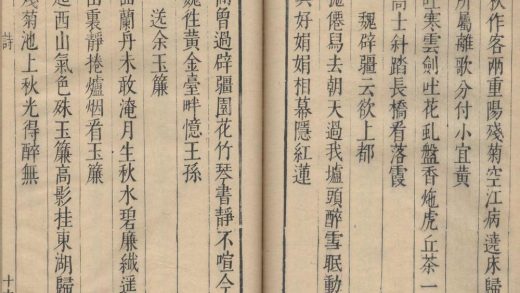 秋作客兩重陽殘菊空江病遶床歸
所屬離歌分付小宜黃
吐寒雲劍吐花虬盤香炧虎丘茶一
高士紏踏長橋看落霞
魏辟疆云欲上都
僊舄去朝天過我壚頭醉雪眠動
好娟娟相幕隱紅蓮
曾過辟疆園花竹琴書靜不喧今
往黃金臺畔憶王孫
送余玉簾
蘭丹木敢淹月生秋水碧廉纖遥
裏靜捲爐烟看玉簾
西山氣色殊玉簾高影挂東湖歸
殘菊池上秋光得醉無
詩 十